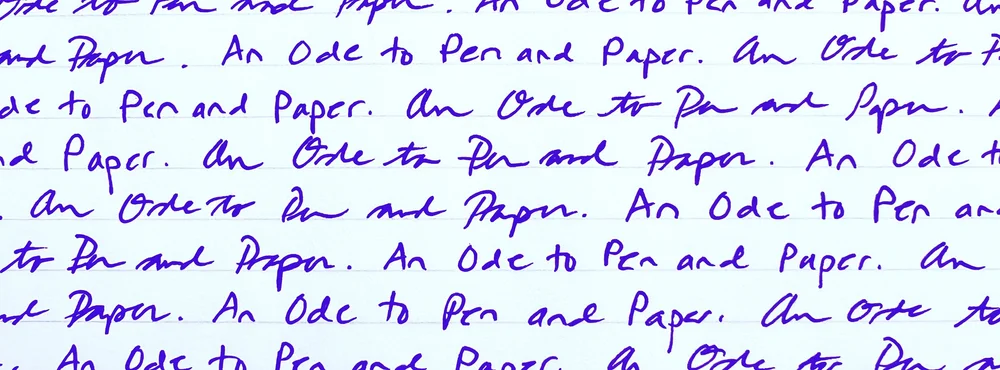 Ode to Pen and Paper. An Ode to Pen and Paper. An
and Paper. An Ode to Pen and Paper. An Ode to
de to Pen and Paper. An Ode to Pen and Paper.
nd Paper. An Ode to Pen and Paper. An Ode to
. An Ode to Pen and Paper. An Ode to Pen an
to Pen and Paper. An Ode to Pen and Paper. An
nd Paper. An Ode to Pen and Paper. An Ode to
. An Ode to Pen and Paper. An Ode to Pen an